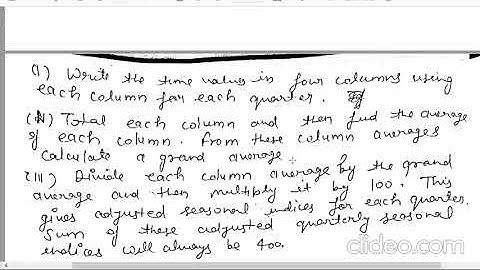 (I) Write the time values in four columns using
each column for each quarter.
(II) Total each column and then find the average
of each column. From these column averages
calculate a grand average.
(III) Divide each column average by the grand
average and then multiply it by 100. This
gives adjusted seasonal indices for each quarter.
Sum of these adjusted quarterly seasonal
indices will always be 400.
clideo.com